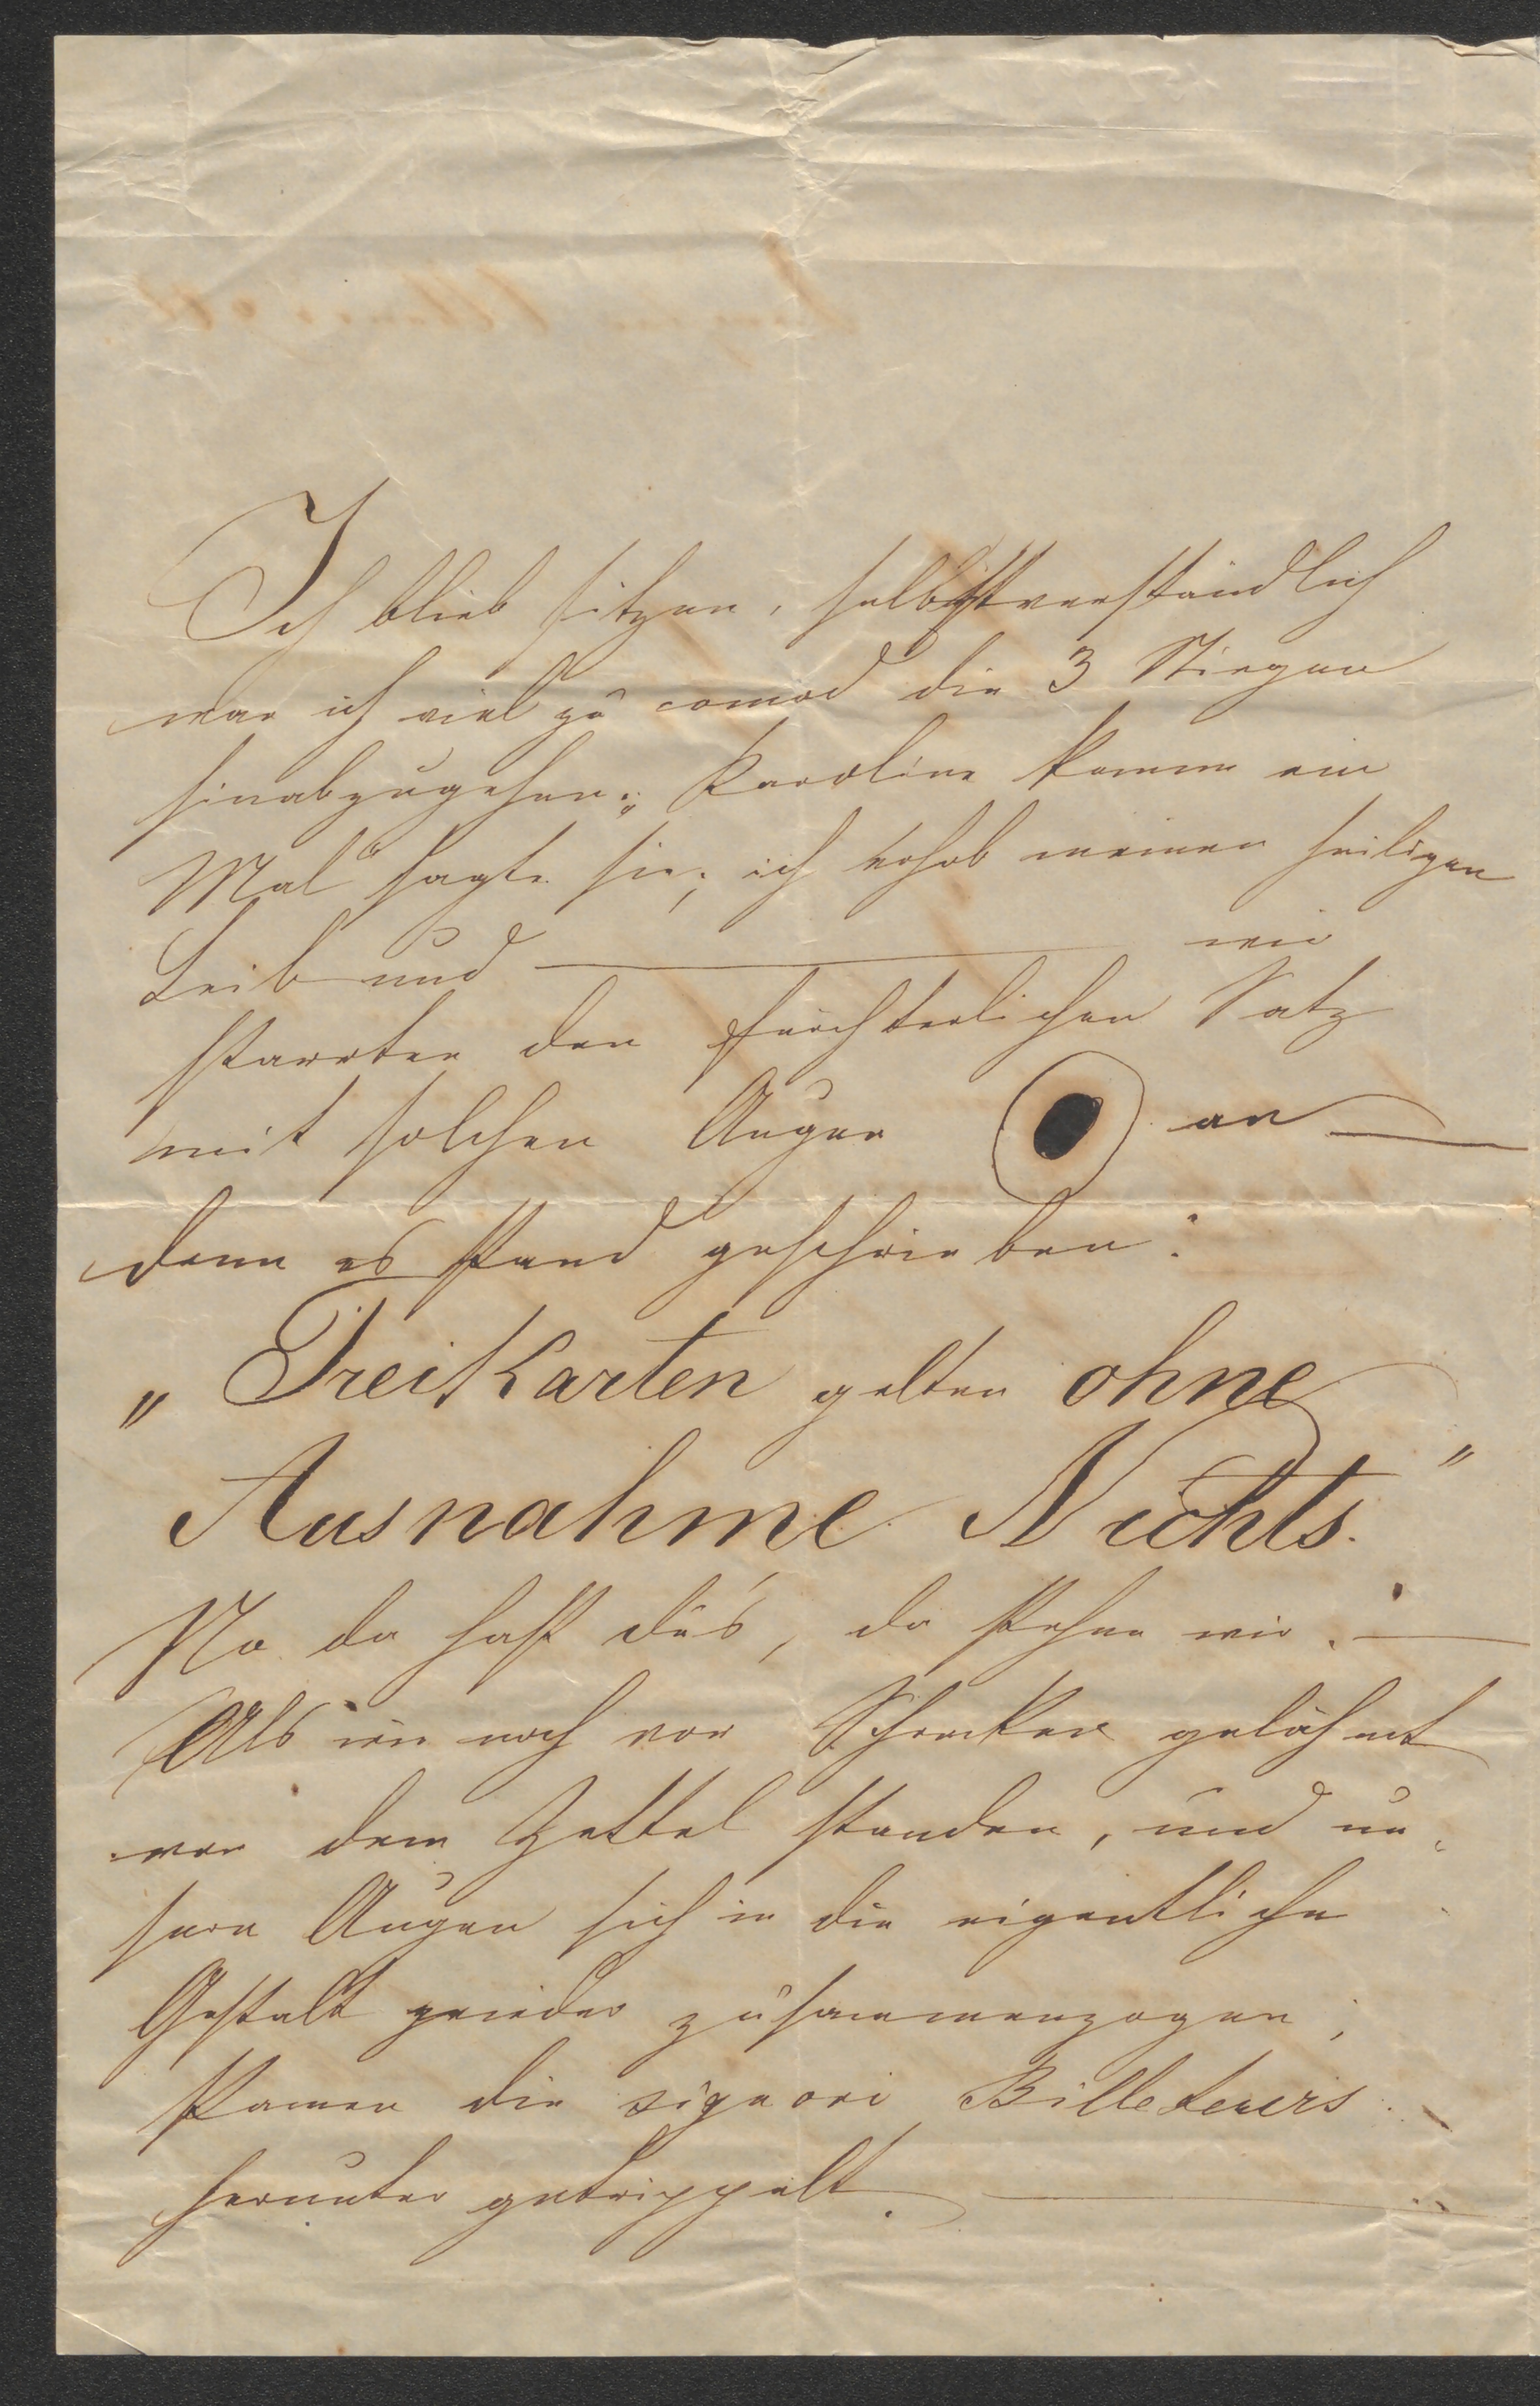 Ich blieb sitzen, selbstverständlich
war ich viel zu comod die 3 Stiegen
hinabzugehen. „Karoline komm ein
Mal“ sagte sie; ich erhob meinen heiligen
Leib und ——— wir
starrten den fürchterlichen Satz
mit solchen Augen an —
denn es stand geschrieben:
„Freikarten gelten ohne
Ausnahme Nichts."
No da hast du's, da stehen wir. —
Als wir noch vor Schrecken gelähmt
vor dem Zettel standen, und un-
sere Augen sich in die eigentliche
Gestalt wieder zusammenzogen,
kamen die signori Billeteurs
herunter getrippelt. ———